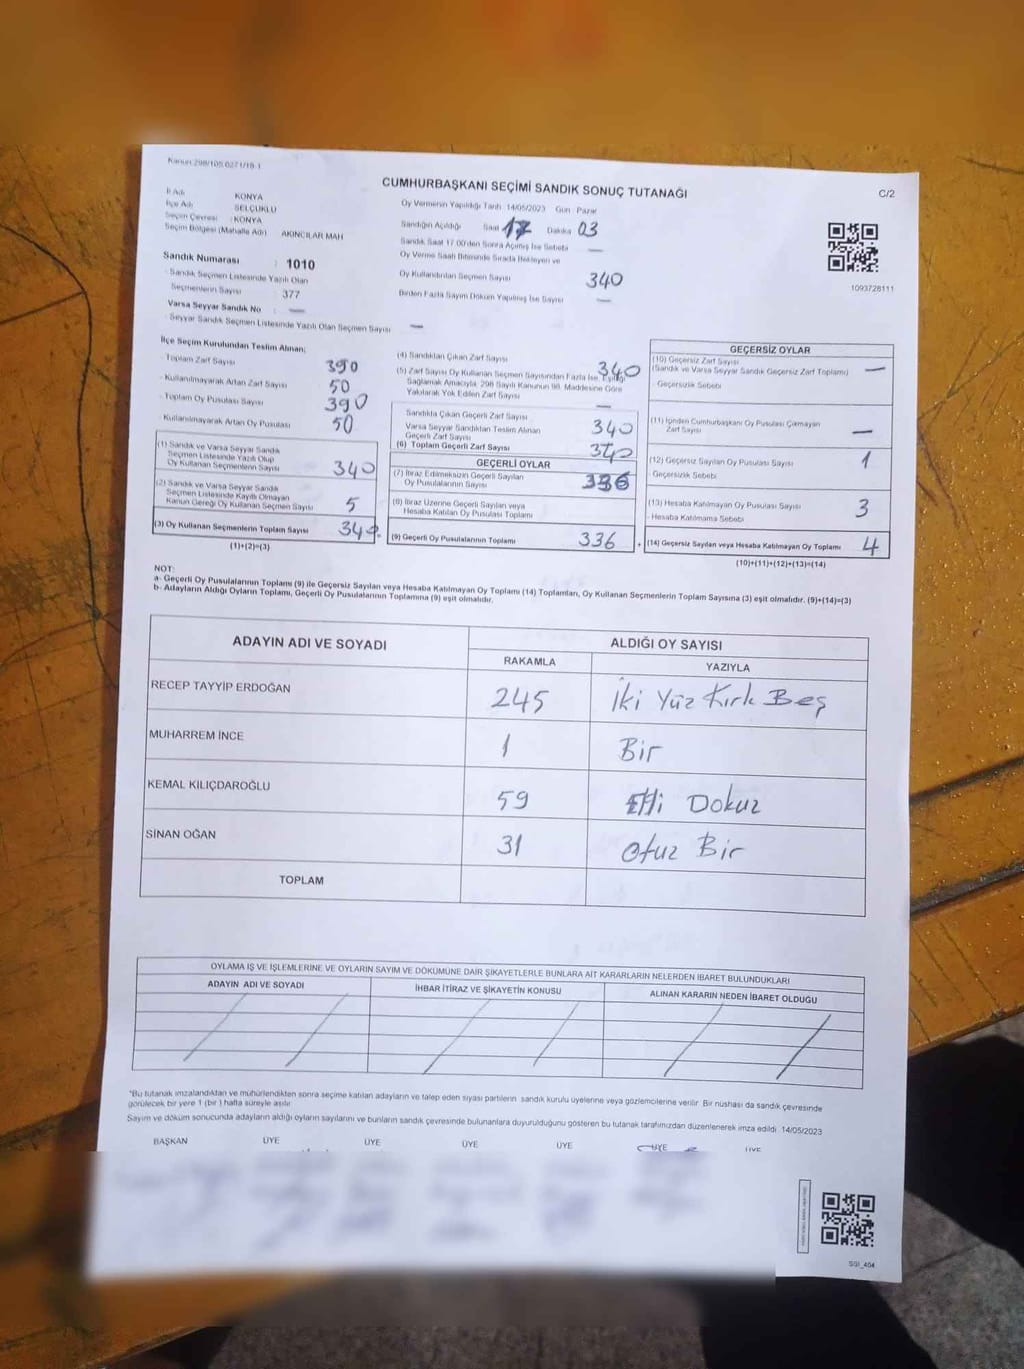 Kanun 298/105 0271/18-1
CUMHURBAŞKANI SEÇİMİ SANDIK SONUÇ TUTANAĞI
C/2
İl Adı KONYA
İlçe Adı SELÇUKLU
Seçim Çevresi : KONYA
Seçim Bölgesi (Mahalle Adı) AKINCILAR MAH
Oy Vermenin Yapıldığı Tarih 14/05/2023 Gün Pazar
Sandığın Açıldığı Saat 17 Dakika 03
Sandık Saat 17.00'den Sonra Açılmış İse Sebebi —
Oy Verme Saati Bitiminde Sırada Bekleyen ve
Oy Kullandırılan Seçmen Sayısı 340
Birden Fazla Sayım Döküm Yapılmış İse Sayısı —
1093728111
Sandık Numarası : 1010
- Sandık Seçmen Listesinde Yazılı Olan
Seçmenlerin Sayısı : 377
Varsa Seyyar Sandık No : —
- Seyyar Sandık Seçmen Listesinde Yazılı Olan Seçmen Sayısı —
İlçe Seçim Kurulundan Teslim Alınan;
- Toplam Zarf Sayısı 390
- Kullanılmayarak Artan Zarf Sayısı 50
- Toplam Oy Pusulası Sayısı 390
- Kullanılmayarak Artan Oy Pusulası 50
(1) Sandık ve Varsa Seyyar Sandık
Seçmen Listesinde Yazılı Olup
Oy Kullanan Seçmenlerin Sayısı 340
(2) Sandık ve Varsa Seyyar Sandık
Seçmen Listesinde Kayıtlı Olmayan
Kanun Gereği Oy Kullanan Seçmen Sayısı 5
(3) Oy Kullanan Seçmenlerin Toplam Sayısı 340
(1)+(2)=(3)
(4) Sandıktan Çıkan Zarf Sayısı 340
(5) Zarf Sayısı Oy Kullanan Seçmen Sayısından Fazla İse, Eşitliği
Sağlamak Amacıyla, 298 Sayılı Kanunun 98. Maddesine Göre
Yakılarak Yok Edilen Zarf Sayısı —
Sandıkta Çıkan Geçerli Zarf Sayısı 340
Varsa Seyyar Sandıktan Teslim Alınan
Geçerli Zarf Sayısı
(6) Toplam Geçerli Zarf Sayısı 340
GEÇERLİ OYLAR
(7) İtiraz Edilmeksizin Geçerli Sayılan
Oy Pusulalarının Sayısı 336
(8) İtiraz Üzerine Geçerli Sayılan veya
Hesaba Katılan Oy Pusulası Toplamı
(9) Geçerli Oy Pusulalarının Toplamı 336 +
GEÇERSİZ OYLAR
(10) Geçersiz Zarf Sayısı
(Sandık ve Varsa Seyyar Sandık Geçersiz Zarf Toplamı) —
- Geçersizlik Sebebi
(11) İçinden Cumhurbaşkanı Oy Pusulası Çıkmayan
Zarf Sayısı —
(12) Geçersiz Sayılan Oy Pusulası Sayısı 1
- Geçersizlik Sebebi
(13) Hesaba Katılmayan Oy Pusulası Sayısı 3
- Hesaba Katılmama Sebebi
(14) Geçersiz Sayılan veya Hesaba Katılmayan Oy Toplamı 4
(10)+(11)+(12)+(13)=(14)
NOT:
a- Geçerli Oy Pusulalarının Toplamı (9) ile Geçersiz Sayılan veya Hesaba Katılmayan Oy Toplamı (14) Toplamları, Oy Kullanan Seçmenlerin Toplam Sayısına (3) eşit olmalıdır. (9)+(14)=(3)
b- Adayların Aldığı Oyların Toplamı, Geçerli Oy Pusulalarının Toplamına (9) eşit olmalıdır.
ADAYIN ADI VE SOYADI
ALDIĞI OY SAYISI
RAKAMLA
YAZIYLA
RECEP TAYYİP ERDOĞAN 245 İki Yüz Kırk Beş
MUHARREM İNCE 1 Bir
KEMAL KILIÇDAROĞLU 59 Elli Dokuz
SİNAN OĞAN 31 Otuz Bir
TOPLAM
OYLAMA İŞ VE İŞLEMLERİNE VE OYLARIN SAYIM VE DÖKÜMÜNE DAİR ŞİKAYETLERLE BUNLARA AİT KARARLARIN NELERDEN İBARET BULUNDUKLARI
ADAYIN ADI VE SOYADI
İHBAR İTİRAZ VE ŞİKAYETİN KONUSU
ALINAN KARARIN NEDEN İBARET OLDUĞU
*Bu tutanak imzalandıktan ve mühürlendikten sonra seçime katılan adayların ve talep eden siyasi partilerin sandık kurulu üyelerine veya gözlemcilerine verilir. Bir nüshası da sandık çevresinde
görülecek bir yere 1 (bir) hafta süreyle asılır.
Sayım ve döküm sonucunda adayların aldığı oyların sayılarını ve bunların sandık çevresinde bulunanlara duyurulduğunu gösteren bu tutanak tarafımızdan düzenlenerek imza edildi. 14/05/2023
BAŞKAN ÜYE ÜYE ÜYE ÜYE ÜYE ÜYE
SSI_404